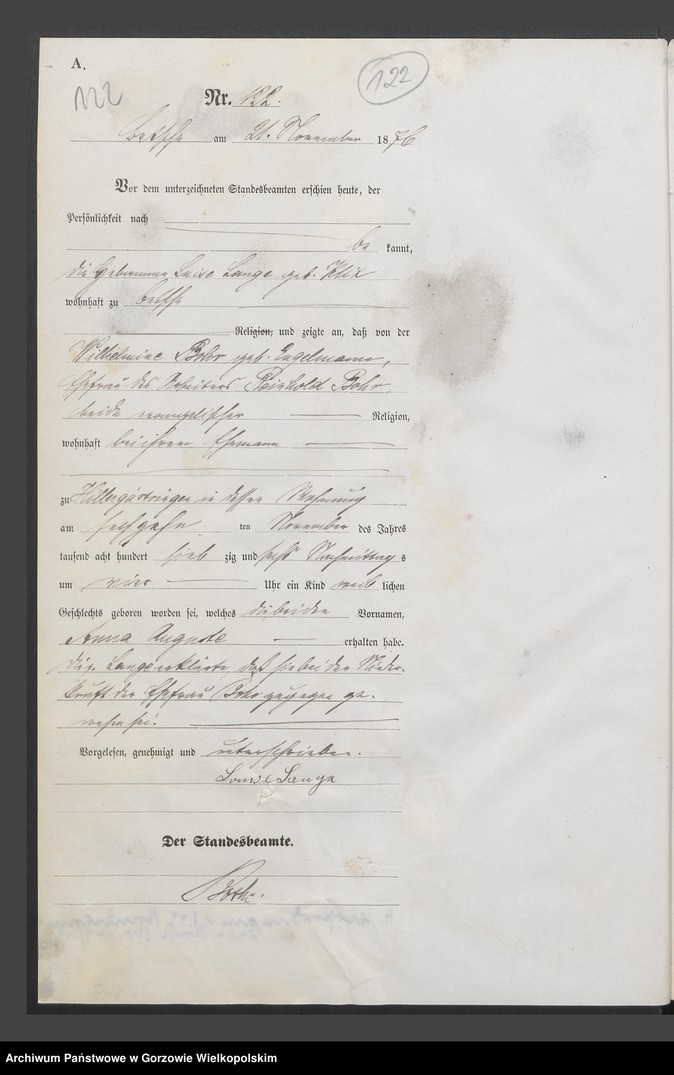 A.
122
122
Nr. 122.
Betsche am 21. November 1876
Vor dem unterzeichneten Standesbeamten erschien heute, der
Persönlichkeit nach
be kannt,
die Hebamme Luise Lange geb. Klix
wohnhaft zu Betsche
Religion, und zeigte an, daß von der
Wilhelmine Bohr geb. Engelmann,
Ehefrau des Arbeiters Reinhold Bohr,
beide evangelischer Religion,
wohnhaft bei ihrem Ehemann
zu in dessen Wohnung
am sechzehn ten November des Jahres
tausend acht hundert sieb zig und sechs Nachmittag s
um vier Uhr ein Kind weib lichen
Geschlechts geboren worden sei, welches die beiden Vornamen,
Anna Auguste erhalten habe.
Die p. Lange erklärte, daß sie bei der Nieder-
kunft der Ehefrau Bohr zugegen ge-
wesen sei.
Vorgelesen, genehmigt und unterschrieben.
Louise Lange
Der Standesbeamte.
Archiwum Państwowe w Gorzowie Wielkopolskim